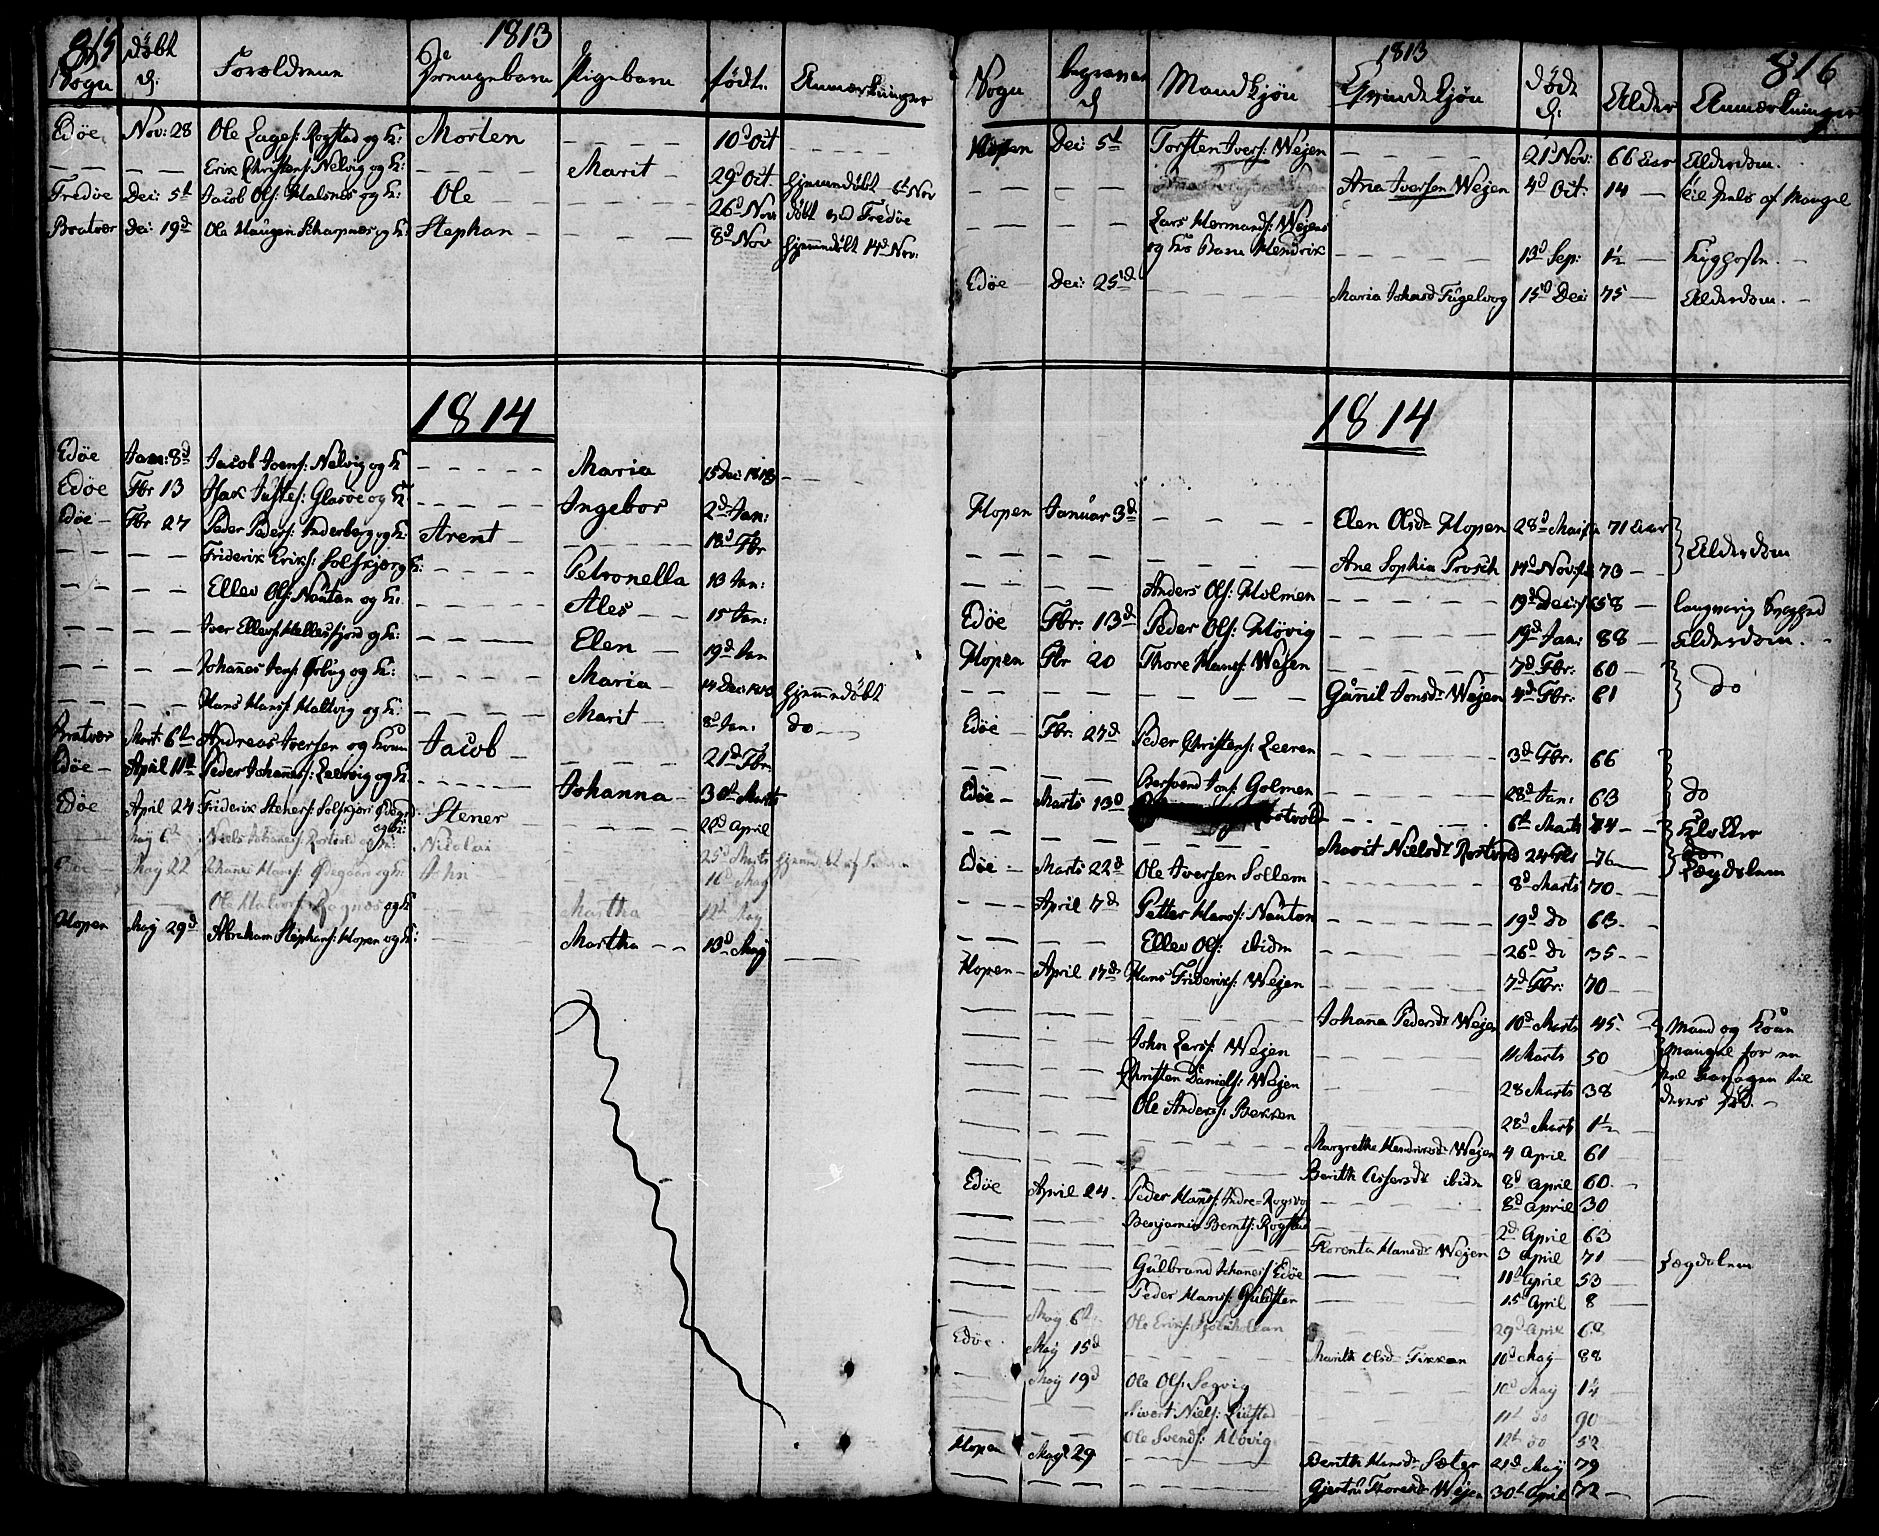 815
1813
Sogn
døbt d:
Forældrene
Drengebarn
Pigebarn
født.
Anmærkninger
Edøe Nov: 28 Ole Lages: Rogstad og K: Morten - - - - 10d Oct - - - -
- - - - Erik Christens: Nelvig og K: - - - - Marit - 29d Oct. hjemmedøbt 6t Nov
Fredøe Dec: 5t Jacob Ols: Kalsnes og K: Ole - - - - - 26d Nov døbt ved Fredøe
Bratvær Dec: 19d Ole Haugen Skarpnæs og K: Stephan - - - - 8d Nov hjemmedøbt 14d Nov:
1814
Edøe Jan: 8d Jacob Joens: Nelvig og K - - - - Maria 15 Dec: 1813 - - -
Edøe Fbr 13 Isak Justes: Glasøe og K - - - - Ingebor 2d Jan:
Edøe - Fbr 27 Peder Peders: Inderberg og K: Arent - - - - - 18d Fbr
- - - - Friderik Eriks: Solskjør og K: - - - - Petronella 13 Jan:
- - - - Ellev Ols: Nauten og K: - - - - Ales - 15 Jan:
- - - - Iver Ellevs: Hallesfjord og K: - - - - Elen - 19d Jan
- - - - Johannes Jens: Ørbug og K: - - - - Maria - 14 Dec: 1813 hjemmedøbt
- - - - Hans Hans: Haltvig og K: - - - - Marit - 8d Jan: do - -
Bratvær Mart: 6te Andreas Iversen og Koun Jacob - - - - 21d Fbr
Edøe - April 11d Peder Johannes: Leervig og K: - - - - Johanna - 30t Marts
Edøe April 24 Friderik Steners: Solskjør Ødegrd og K: Stener - - - - 22d April
May 6t Niels Johanes: Rostvold og K: Nicolai - 25d Marts
Edøe - May 22 Johanes Havs: Ødegaard og K: Ahn - - - - 16d May
Ole Halvors: Rognæs og K - - - Martha 12t May
Hopen May 29d Abraham Stephans: Hopen og K: - - - - Martha - - 13d May - - - -
816
1813
Sogn
begraven d
Mandkjøn
Qvindekjøn
døde d:
Alder
Anmærkninger
Hopen Dec: 5t Torsten Ivers: Wejen - - - - 21d Nov: 66 Aar Alderdom.
- - - - Ana Iversen Wejen 4d Oct: 14 - til deels af Mangel
- - - - Lars Hermands: Wejens
og Ks Barn Hendrik - - - - 13d Sep: 1½ Kighoste. -
Edøe - Dec: 25d - - - - Maria Johasd Fugelvog 15d Dec: 75 - Alderdom. -
1814
Hopen Januar 3d - - - - Elen Olsdr Hopen 28d Mai 71 Aar
- - - - Ane Sophia Prosch 14d Nov: 73 - Alderdom
- - - - Anders Ols: Holmen - - - - 19d Dec: 58 - langvarig Svaghed
Edøe Fbr: 13d Peder Ols: Høvig - - - - 19d Jan: 88 - Alderdom. -
Hopen Fbr 20 Thore Hans: Wejen - - - - 7d Fbr: 60 -
- - - - Gunnil Jonsdr Wejen 4d Fbr: 81 do
Edøe - Fbr. 27d Peder Christens: Leeren - - - - 3d Fbr. 66
- - - - Jons: Golmen - - - - 28d Jan: 63 do
Edøe - Marts 13d - - - - 6t Marts 74 - - Klokker
- - - - Marit Nielsdr Rostvold 24 Fbr 76 - do
Edøe - Marts 22d Ole Iversen Sollem - - - - 8d Marts 70 - - Lægdslem
- April 7d Petter Hans: Nauton - - - - 19d do 63 -
- - - - Ellev Ols: ibidm - - - - 26d do 35 - -
Hopen - April 17d Hans Frideriks: Wejen - - - - 7d Fbr: 70 -
- - - - Johana Pedersdr Wejen 10d Marts 45 - Mand og Koun
- - - - John Lars: Wejen - - - - 11 Marts 50 Mangel for en
- - - - Christen Daniels: Wejen - - - - 28 Marts 38 deel Aarsagen til
- - - - Ole Anders: Bekken - - - - 28d Marts 1½ deres død. -
- - - - Margrethe Hendriksdr Wejen 4 April 61 -
- - - - Berith Assersdr ibidm 8d April 60 -
Edøe April 24. Peder Hans: Indre-Rogsvog - - - - 8d April 30
- - - - Benjamin Bernts: Rogstad - - - - 2d April 63
- - - - Florenta Hansdr Wejen 3 April 71 - Lægdslem
- - - - Gulbrand Johanes: Edøe - - - - 11t April 53 -
- - - - Peder Hans: Guldsten - - - - 15 April 8 -
May 6t. Ole Eriks: - - - - 29d April 68
Edøe - May 15d - - - - Marith Olsdr Tikkan 10d May 88
- May 19d Ole Ols: Sogvig - - - - 10d May 14
- - - - Sivert Niels: Liustad - - - - 11t do 90 -
- - - - Ole Svends: Høvig - - - - 12t do 52
Hopen May 29 - - - - Berith Hansdr Sæter 21d May 79
- - - - Gjertru Thoresdr Wejen 30t April 72 -